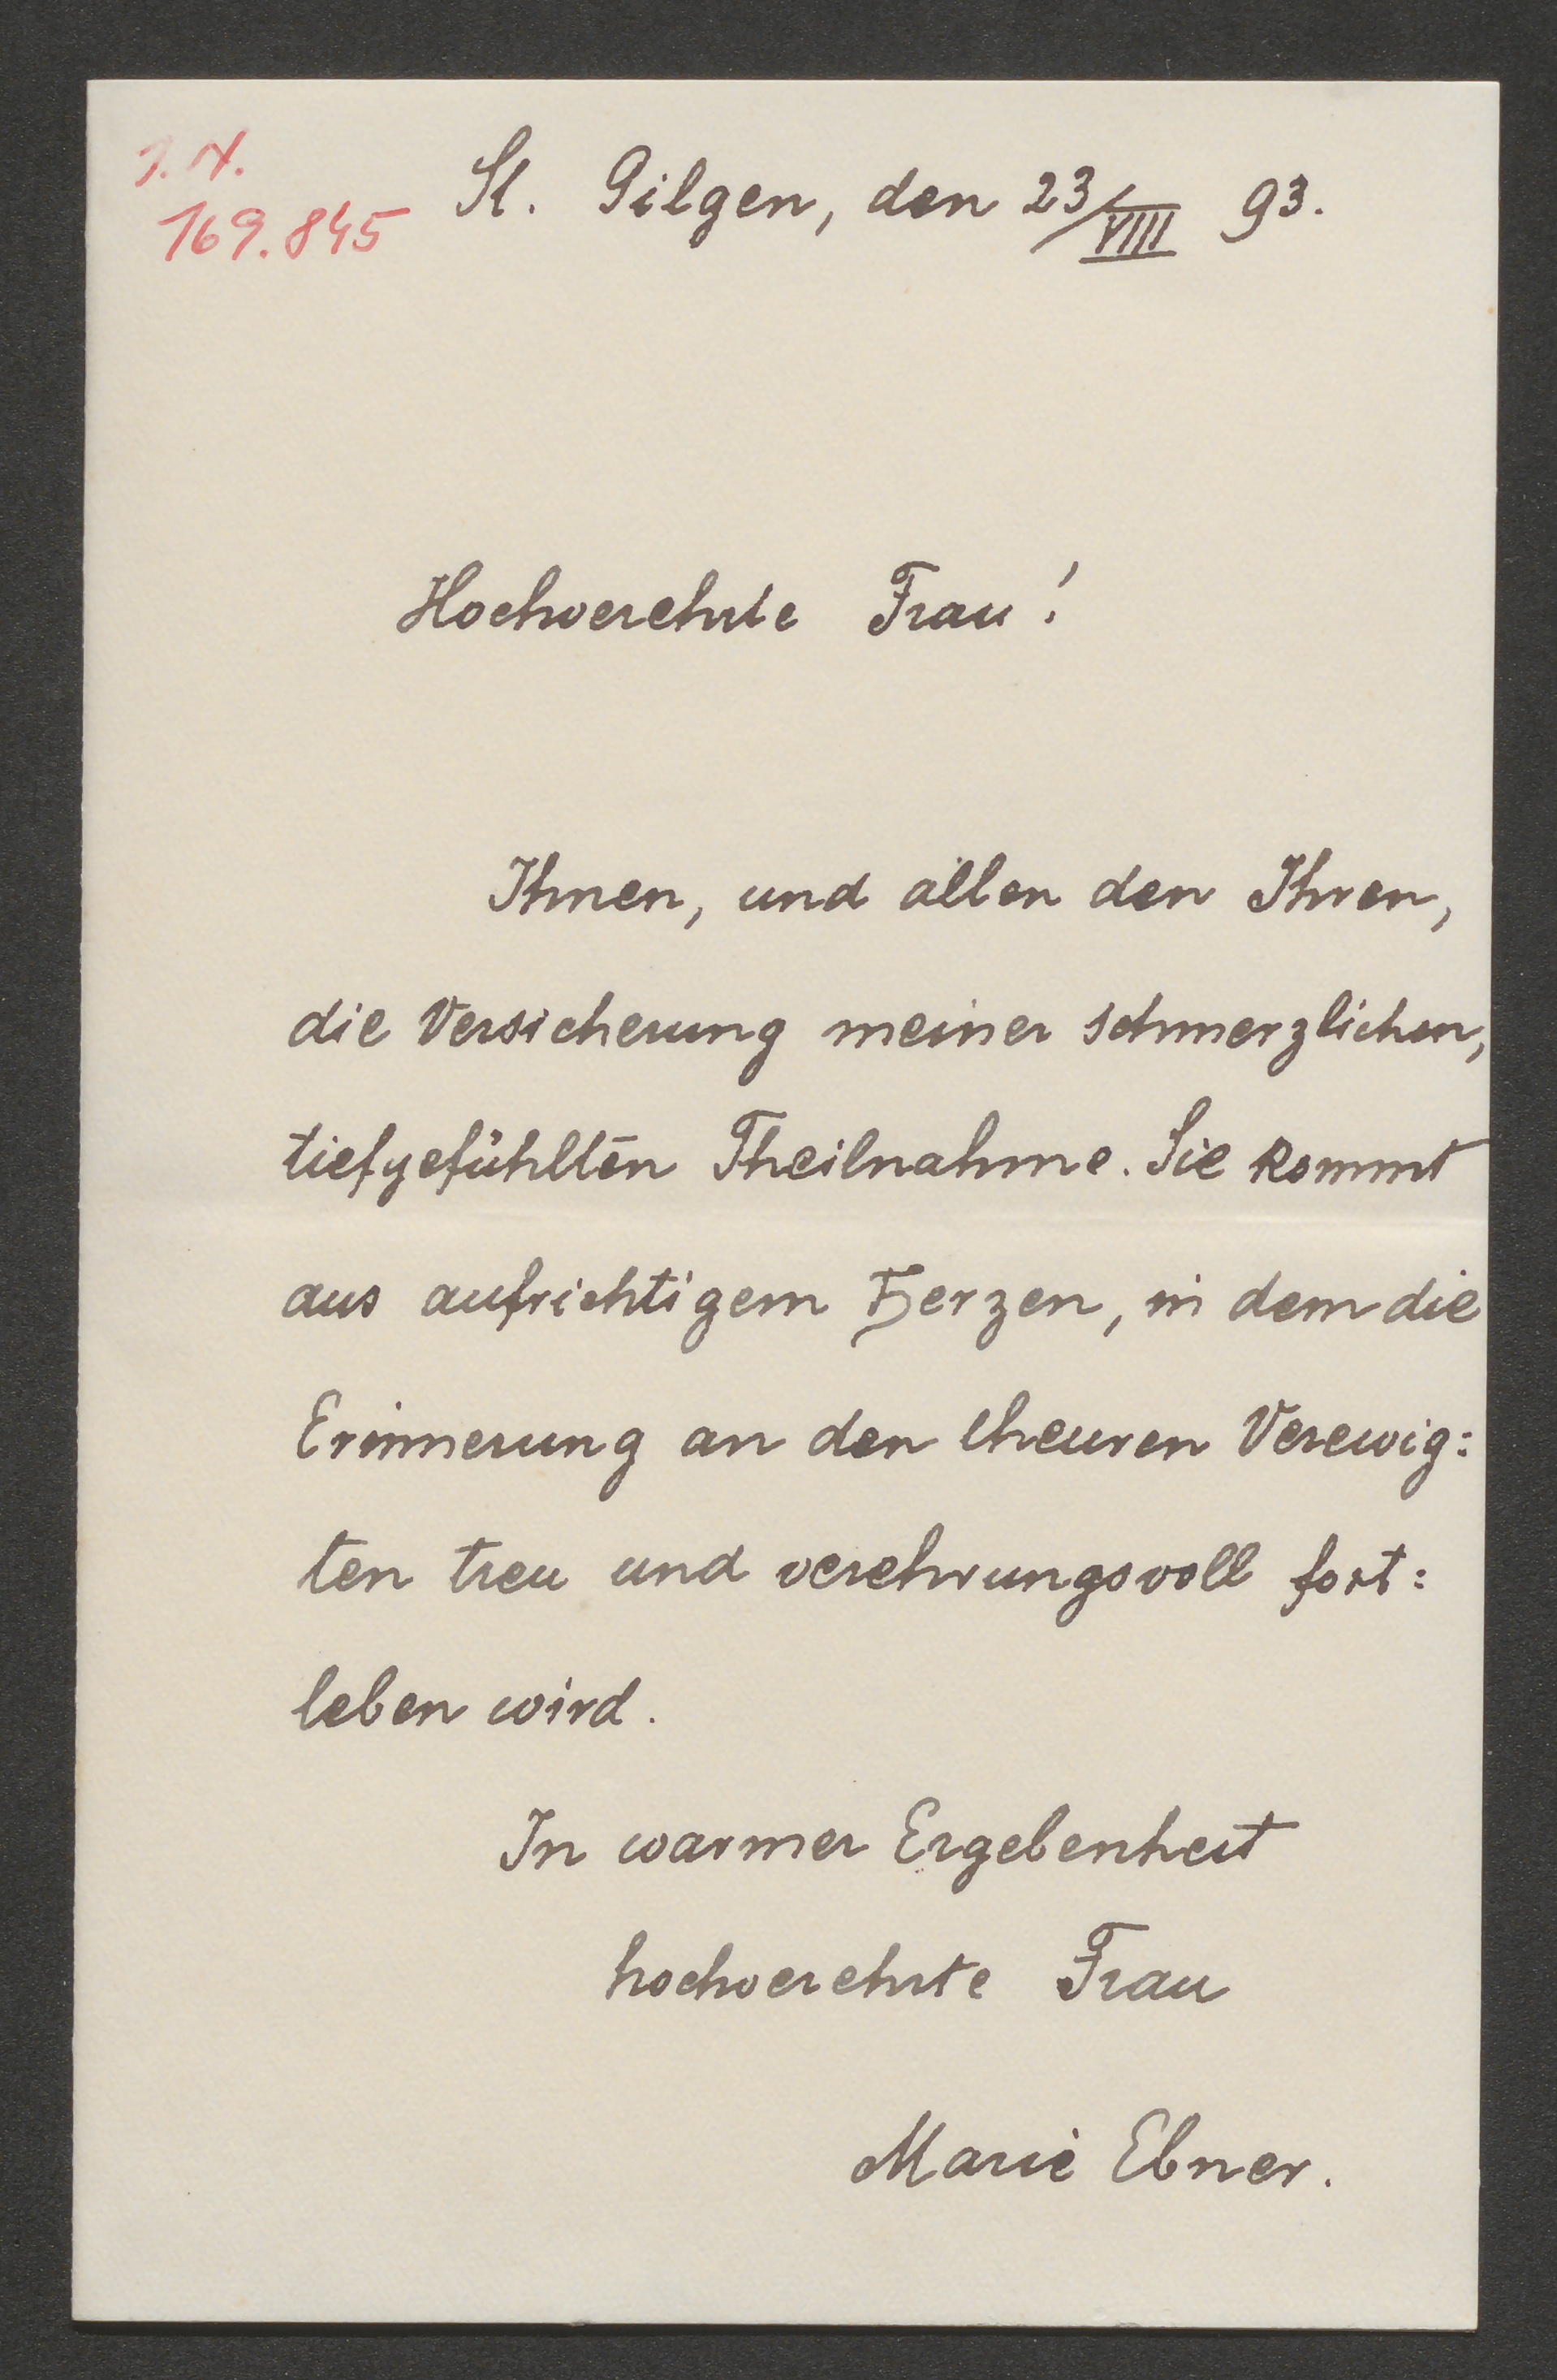 I. N.
169.845
St. Gilgen, den 23/VIII 93.
Hochverehrte Frau!
Ihnen, und allen den Ihren,
die Versicherung meiner schmerzlichen,
tiefgefühlten Theilnahme. Sie kommt
aus aufrichtigem Herzen, in dem die
Erinnerung an den theuren Verewig:
ten treu und verehrungsvoll fort:
leben wird.
In warmer Ergebenheit
hochverehrte Frau
Marie Ebner.